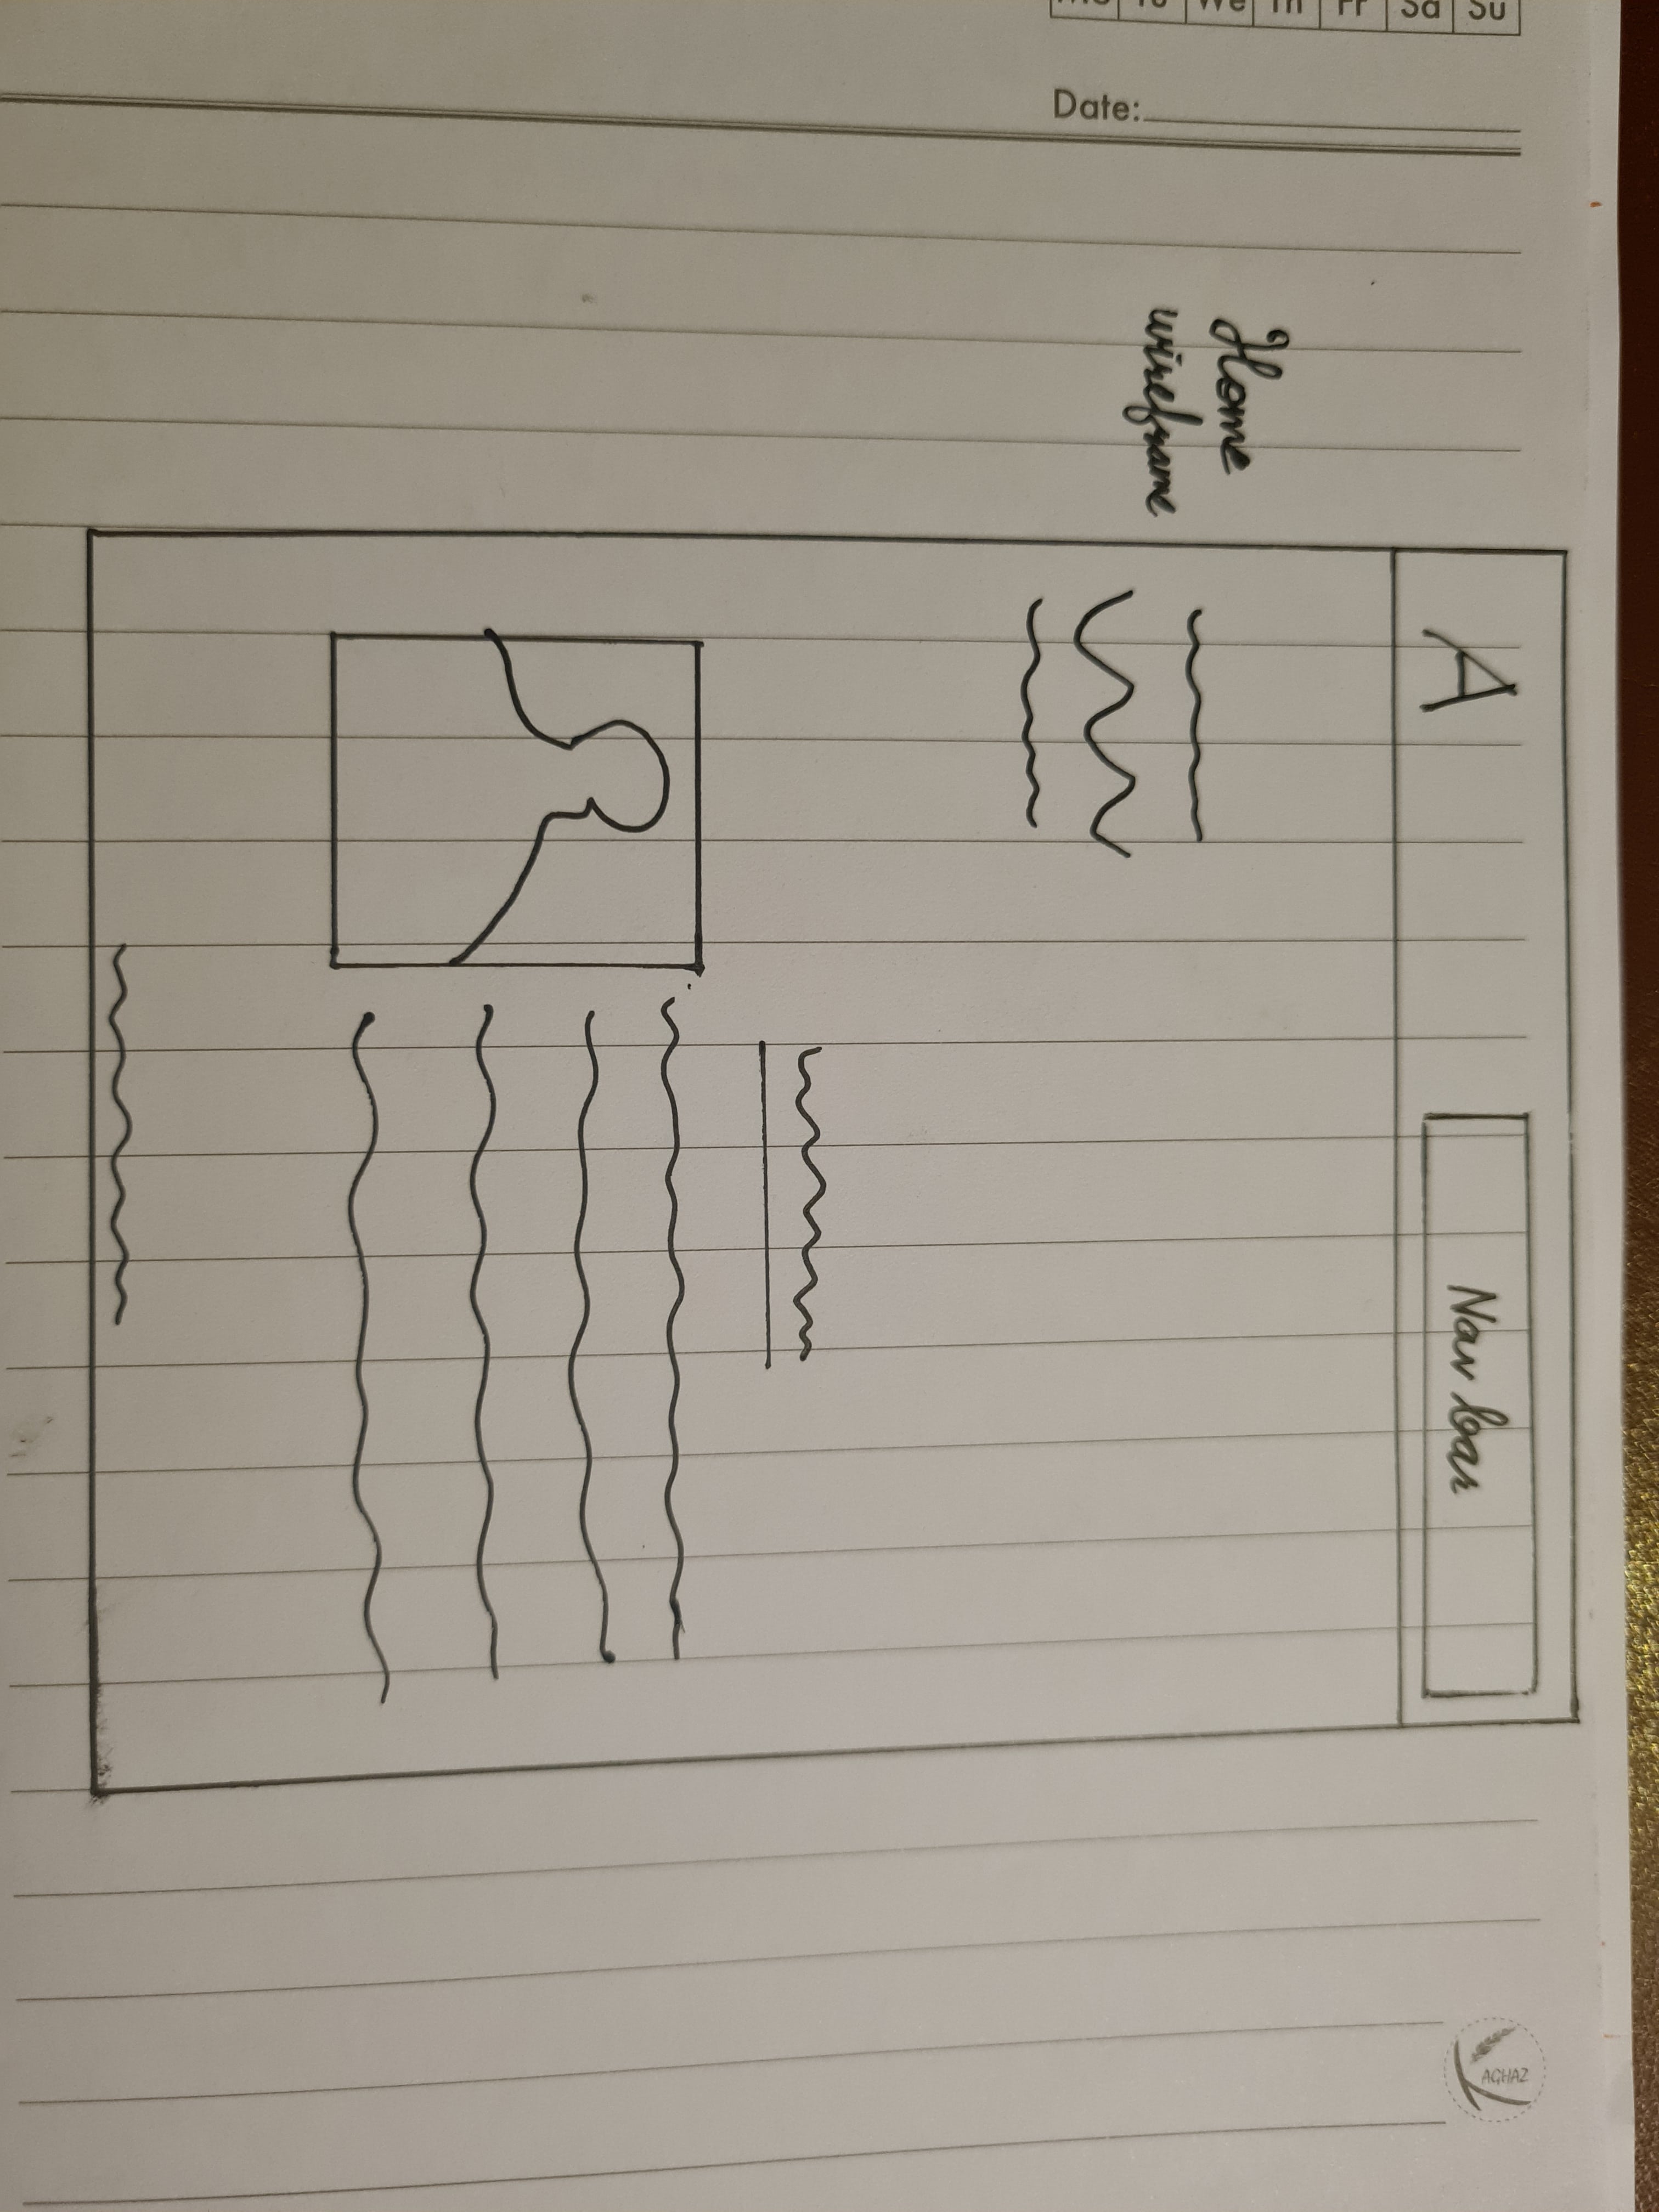 Mo Tu We Th Fr Sa Su
Date:
Home
wireframe
A
Nav bar
AGHAZ